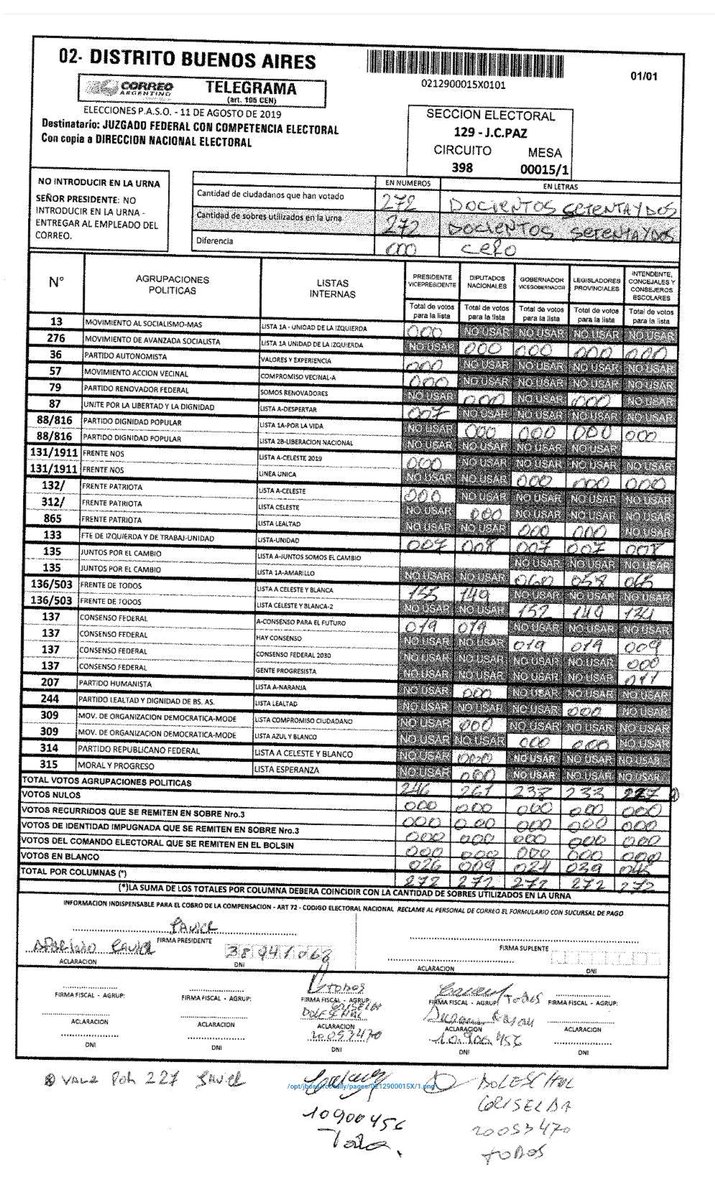 02- DISTRITO BUENOS AIRES
CORREO ARGENTINO
TELEGRAMA
(art. 105 CEN)
0212900015X0101
01/01
ELECCIONES P.A.S.O. - 11 DE AGOSTO DE 2019
Destinatario: JUZGADO FEDERAL CON COMPETENCIA ELECTORAL
Con copia a DIRECCION NACIONAL ELECTORAL
SECCION ELECTORAL
129 - J.C.PAZ
CIRCUITO MESA
398 00015/1
NO INTRODUCIR EN LA URNA
SEÑOR PRESIDENTE: NO
INTRODUCIR EN LA URNA -
ENTREGAR AL EMPLEADO DEL
CORREO.
EN NUMEROS EN LETRAS
Cantidad de ciudadanos que han votado 272 DOCIENTOS SETENTAYDOS
Cantidad de sobres utilizados en la urna 272 DOCIENTOS SETENTAYDOS
Diferencia 000 CERO
N° AGRUPACIONES POLITICAS LISTAS INTERNAS PRESIDENTE VICEPRESIDENTE DIPUTADOS NACIONALES GOBERNADOR VICEGOBERNADOR LEGISLADORES PROVINCIALES INTENDENTE, CONCEJALES Y CONSEJEROS ESCOLARES
Total de votos para la lista Total de votos para la lista Total de votos para la lista Total de votos para la lista Total de votos para la lista
13 MOVIMIENTO AL SOCIALISMO-MAS LISTA 1A - UNIDAD DE LA IZQUIERDA 000 NO USAR NO USAR NO USAR NO USAR
276 MOVIMIENTO DE AVANZADA SOCIALISTA LISTA 1A UNIDAD DE LA IZQUIERDA NO USAR 000 000 000 000
36 PARTIDO AUTONOMISTA VALORES Y EXPERIENCIA 000 NO USAR NO USAR NO USAR NO USAR
57 MOVIMIENTO ACCION VECINAL COMPROMISO VECINAL-A 000 NO USAR NO USAR NO USAR NO USAR
79 PARTIDO RENOVADOR FEDERAL SOMOS RENOVADORES NO USAR 000 NO USAR 000 NO USAR
87 UNITE POR LA LIBERTAD Y LA DIGNIDAD LISTA A-DESPERTAR 007 NO USAR NO USAR NO USAR NO USAR
88/816 PARTIDO DIGNIDAD POPULAR LISTA 1A-POR LA VIDA NO USAR 000 000 000 000
88/816 PARTIDO DIGNIDAD POPULAR LISTA 2B-LIBERACION NACIONAL NO USAR NO USAR NO USAR NO USAR
131/1911 FRENTE NOS LISTA A-CELESTE 2019 000 NO USAR NO USAR NO USAR NO USAR
131/1911 FRENTE NOS LINEA UNICA NO USAR NO USAR 000 000 000
132/ FRENTE PATRIOTA LISTA A-CELESTE 000 NO USAR NO USAR NO USAR NO USAR
312/ FRENTE PATRIOTA LISTA CELESTE NO USAR 000 NO USAR NO USAR NO USAR
865 FRENTE PATRIOTA LISTA LEALTAD NO USAR NO USAR 000 000 NO USAR
133 FTE DE IZQUIERDA Y DE TRABAJ-UNIDAD LISTA-UNIDAD 007 008 007 007 008
135 JUNTOS POR EL CAMBIO LISTA A-JUNTOS SOMOS EL CAMBIO NO USAR NO USAR NO USAR
135 JUNTOS POR EL CAMBIO LISTA 1A-AMARILLO NO USAR NO USAR 060 058 065
136/503 FRENTE DE TODOS LISTA A CELESTE Y BLANCA 155 149 NO USAR NO USAR NO USAR
136/503 FRENTE DE TODOS LISTA CELESTE Y BLANCA-2 NO USAR NO USAR 152 149 134
137 CONSENSO FEDERAL A-CONSENSO PARA EL FUTURO 019 019 NO USAR NO USAR NO USAR
137 CONSENSO FEDERAL HAY CONSENSO NO USAR NO USAR 019 019 009
137 CONSENSO FEDERAL CONSENSO FEDERAL 2030 NO USAR NO USAR NO USAR NO USAR 000
137 CONSENSO FEDERAL GENTE PROGRESISTA NO USAR NO USAR NO USAR NO USAR 011
207 PARTIDO HUMANISTA LISTA A-NARANJA NO USAR 000 NO USAR NO USAR NO USAR
244 PARTIDO LEALTAD Y DIGNIDAD DE BS. AS. LISTA LEALTAD NO USAR NO USAR NO USAR 000 NO USAR
309 MOV. DE ORGANIZACION DEMOCRATICA-MODE LISTA COMPROMISO CIUDADANO NO USAR 000 NO USAR NO USAR NO USAR
309 MOV. DE ORGANIZACION DEMOCRATICA-MODE LISTA AZUL Y BLANCO NO USAR NO USAR 000 000 NO USAR
314 PARTIDO REPUBLICANO FEDERAL LISTA A CELESTE Y BLANCO NO USAR 000 NO USAR NO USAR NO USAR
315 MORAL Y PROGRESO LISTA ESPERANZA NO USAR 000 NO USAR NO USAR NO USAR
TOTAL VOTOS AGRUPACIONES POLITICAS 246 261 237 233 227
VOTOS NULOS 000 000 000 000 000
VOTOS RECURRIDOS QUE SE REMITEN EN SOBRE Nro.3 000 000 000 000 000
VOTOS DE IDENTIDAD IMPUGNADA QUE SE REMITEN EN SOBRE Nro.3 000 000 000 000 000
VOTOS DEL COMANDO ELECTORAL QUE SE REMITEN EN EL BOLSIN 000 000 000 000 000
VOTOS EN BLANCO 026 009 024 039 045
TOTAL POR COLUMNAS (*) 272 272 272 272 272
(*)LA SUMA DE LOS TOTALES POR COLUMNA DEBERA COINCIDIR CON LA CANTIDAD DE SOBRES UTILIZADOS EN LA URNA
INFORMACION INDISPENSABLE PARA EL COBRO DE LA COMPENSACION - ART 72 - CODIGO ELECTORAL NACIONAL RECLAME AL PERSONAL DE CORREO EL FORMULARIO CON SUCURSAL DE PAGO
FIRMA PRESIDENTE FIRMA SUPLENTE
ACLARACION DNI ACLARACION DNI
TODOS
FIRMA FISCAL - AGRUP: FIRMA FISCAL - AGRUP: FIRMA FISCAL - AGRUP: FIRMA FISCAL - AGRUP: TODOS FIRMA FISCAL - AGRUP:
GRISELDA
DOLESCHAL
ACLARACION ACLARACION ACLARACION ACLARACION ACLARACION
20053470 10.900456
DNI DNI DNI DNI DNI
VALE POR 227
10900456
DOLESCHAL
GRISELDA
20053470
TODOS